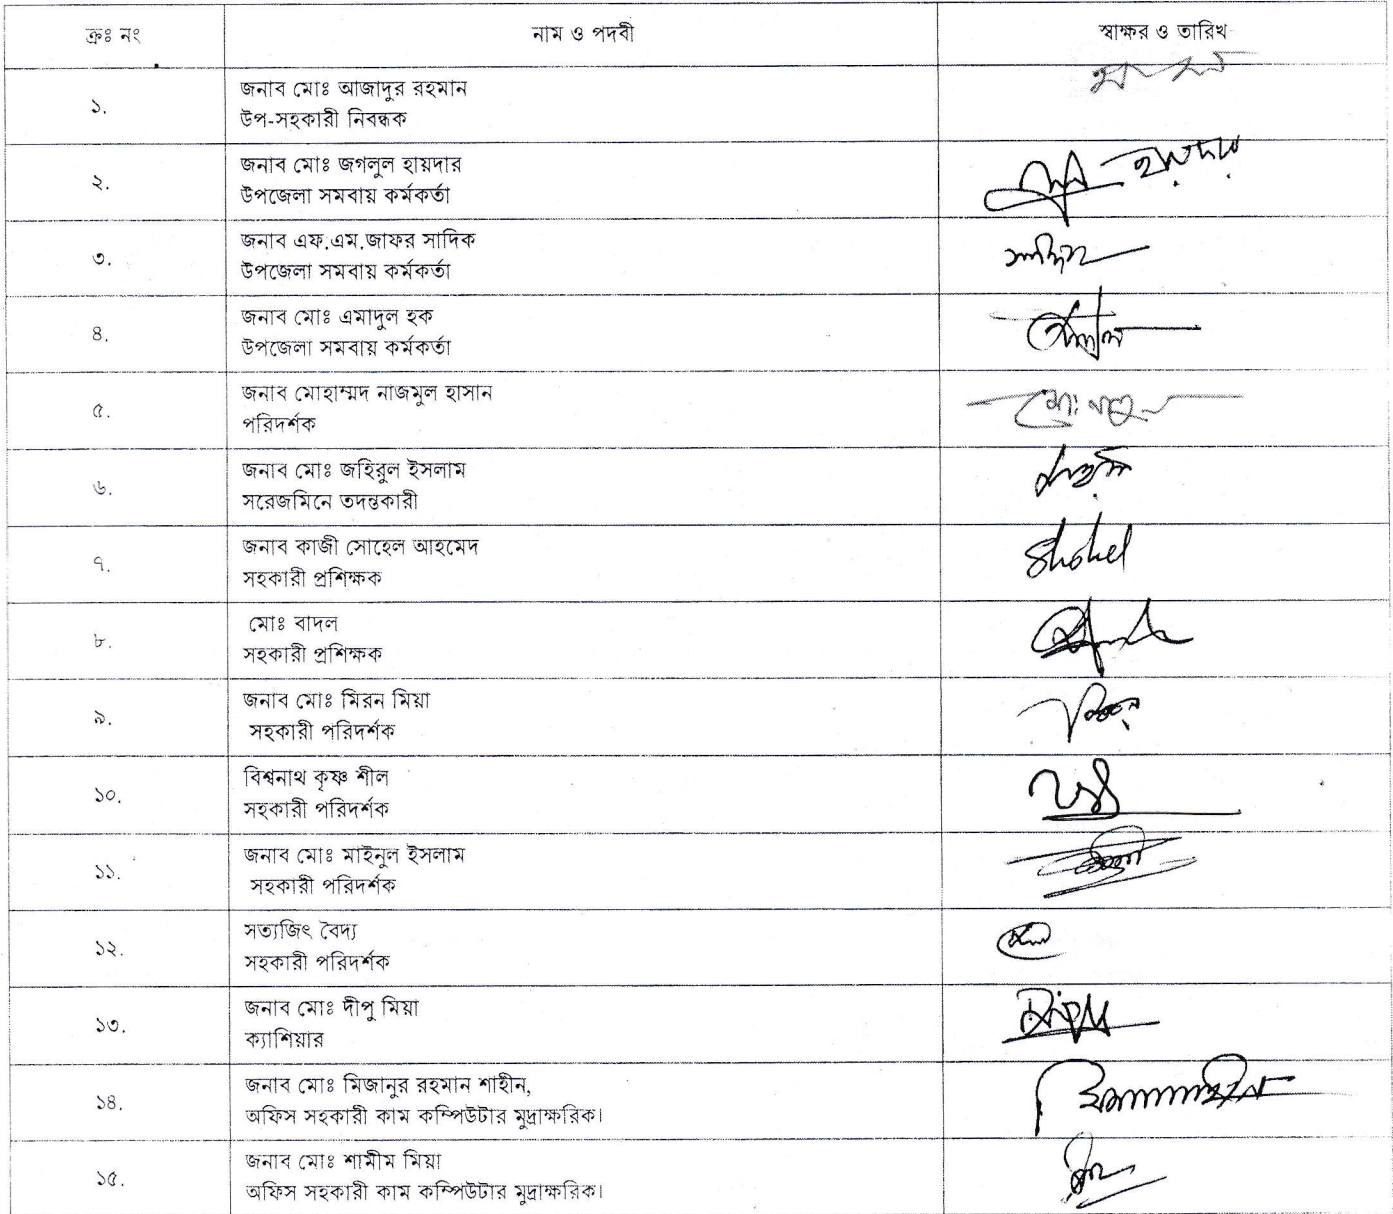 ক্রঃ নং নাম ও পদবী স্বাক্ষর ও তারিখ
১. জনাব মোঃ আজাদুর রহমান
উপ-সহকারী নিবন্ধক
২. জনাব মোঃ জগলুল হায়দার
উপজেলা সমবায় কর্মকর্তা
৩. জনাব এফ.এম.জাফর সাদিক
উপজেলা সমবায় কর্মকর্তা
৪. জনাব মোঃ এমাদুল হক
উপজেলা সমবায় কর্মকর্তা
৫. জনাব মোহাম্মদ নাজমুল হাসান
পরিদর্শক
৬. জনাব মোঃ জহিরুল ইসলাম
সরেজমিনে তদন্তকারী
৭. জনাব কাজী সোহেল আহমেদ Shohel
সহকারী প্রশিক্ষক
৮. মোঃ বাদল
সহকারী প্রশিক্ষক
৯. জনাব মোঃ মিরন মিয়া
সহকারী পরিদর্শক
১০. বিশ্বনাথ কৃষ্ণ শীল
সহকারী পরিদর্শক
১১. জনাব মোঃ মাইনুল ইসলাম
সহকারী পরিদর্শক
১২. সত্যজিৎ বৈদ্য
সহকারী পরিদর্শক
১৩. জনাব মোঃ দীপু মিয়া
ক্যাশিয়ার
১৪. জনাব মোঃ মিজানুর রহমান শাহীন,
অফিস সহকারী কাম কম্পিউটার মুদ্রাক্ষরিক।
১৫. জনাব মোঃ শামীম মিয়া
অফিস সহকারী কাম কম্পিউটার মুদ্রাক্ষরিক।